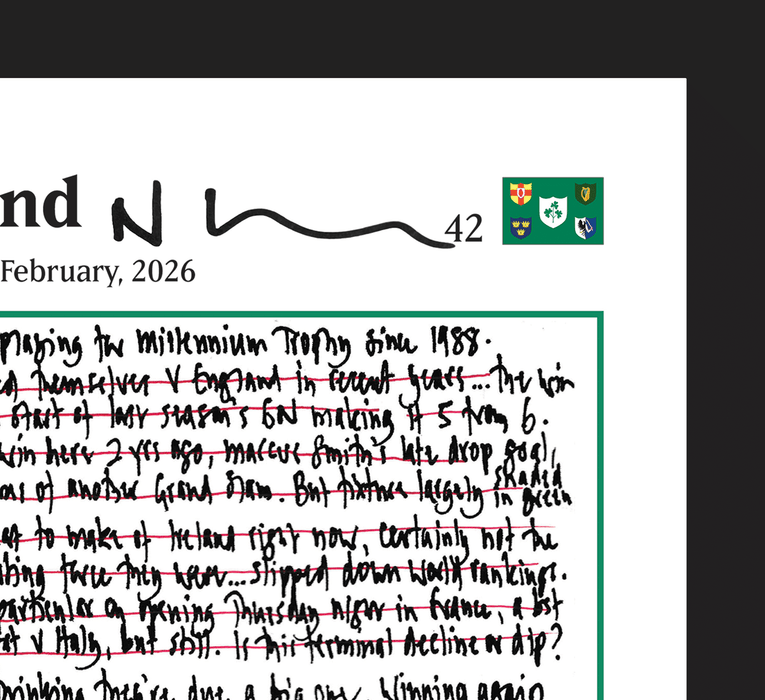 nd N 42
February, 2026
playing the Millennium Trophy since 1988.
themselves v England in recent years... the win
start of last season's 6N making it 5 from 6.
win here 2 yrs ago, Marcus Smith's late drop goal,
of another Grand Slam. But fixtures largely shaded in green
to make of Ireland right now, certainly not the
force they were... slipped down world rankings.
particular on opening Thursday night in France, a bit
v Italy, but still. Is this terminal decline or a dip?
thinking they're due a big one. Winning again